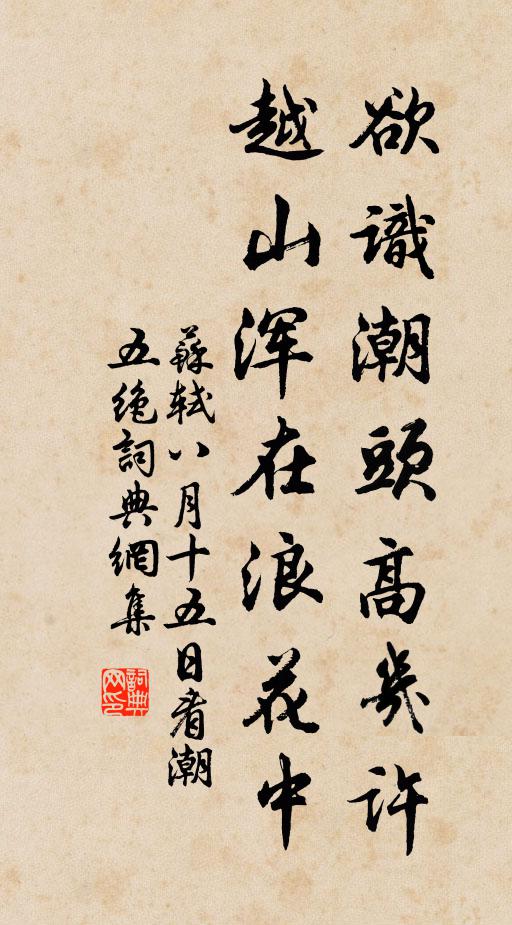 欲識潮頭高幾許
越山渾在浪花中
蘇軾八月十五日看潮
五绝詞典網集
詞典网印